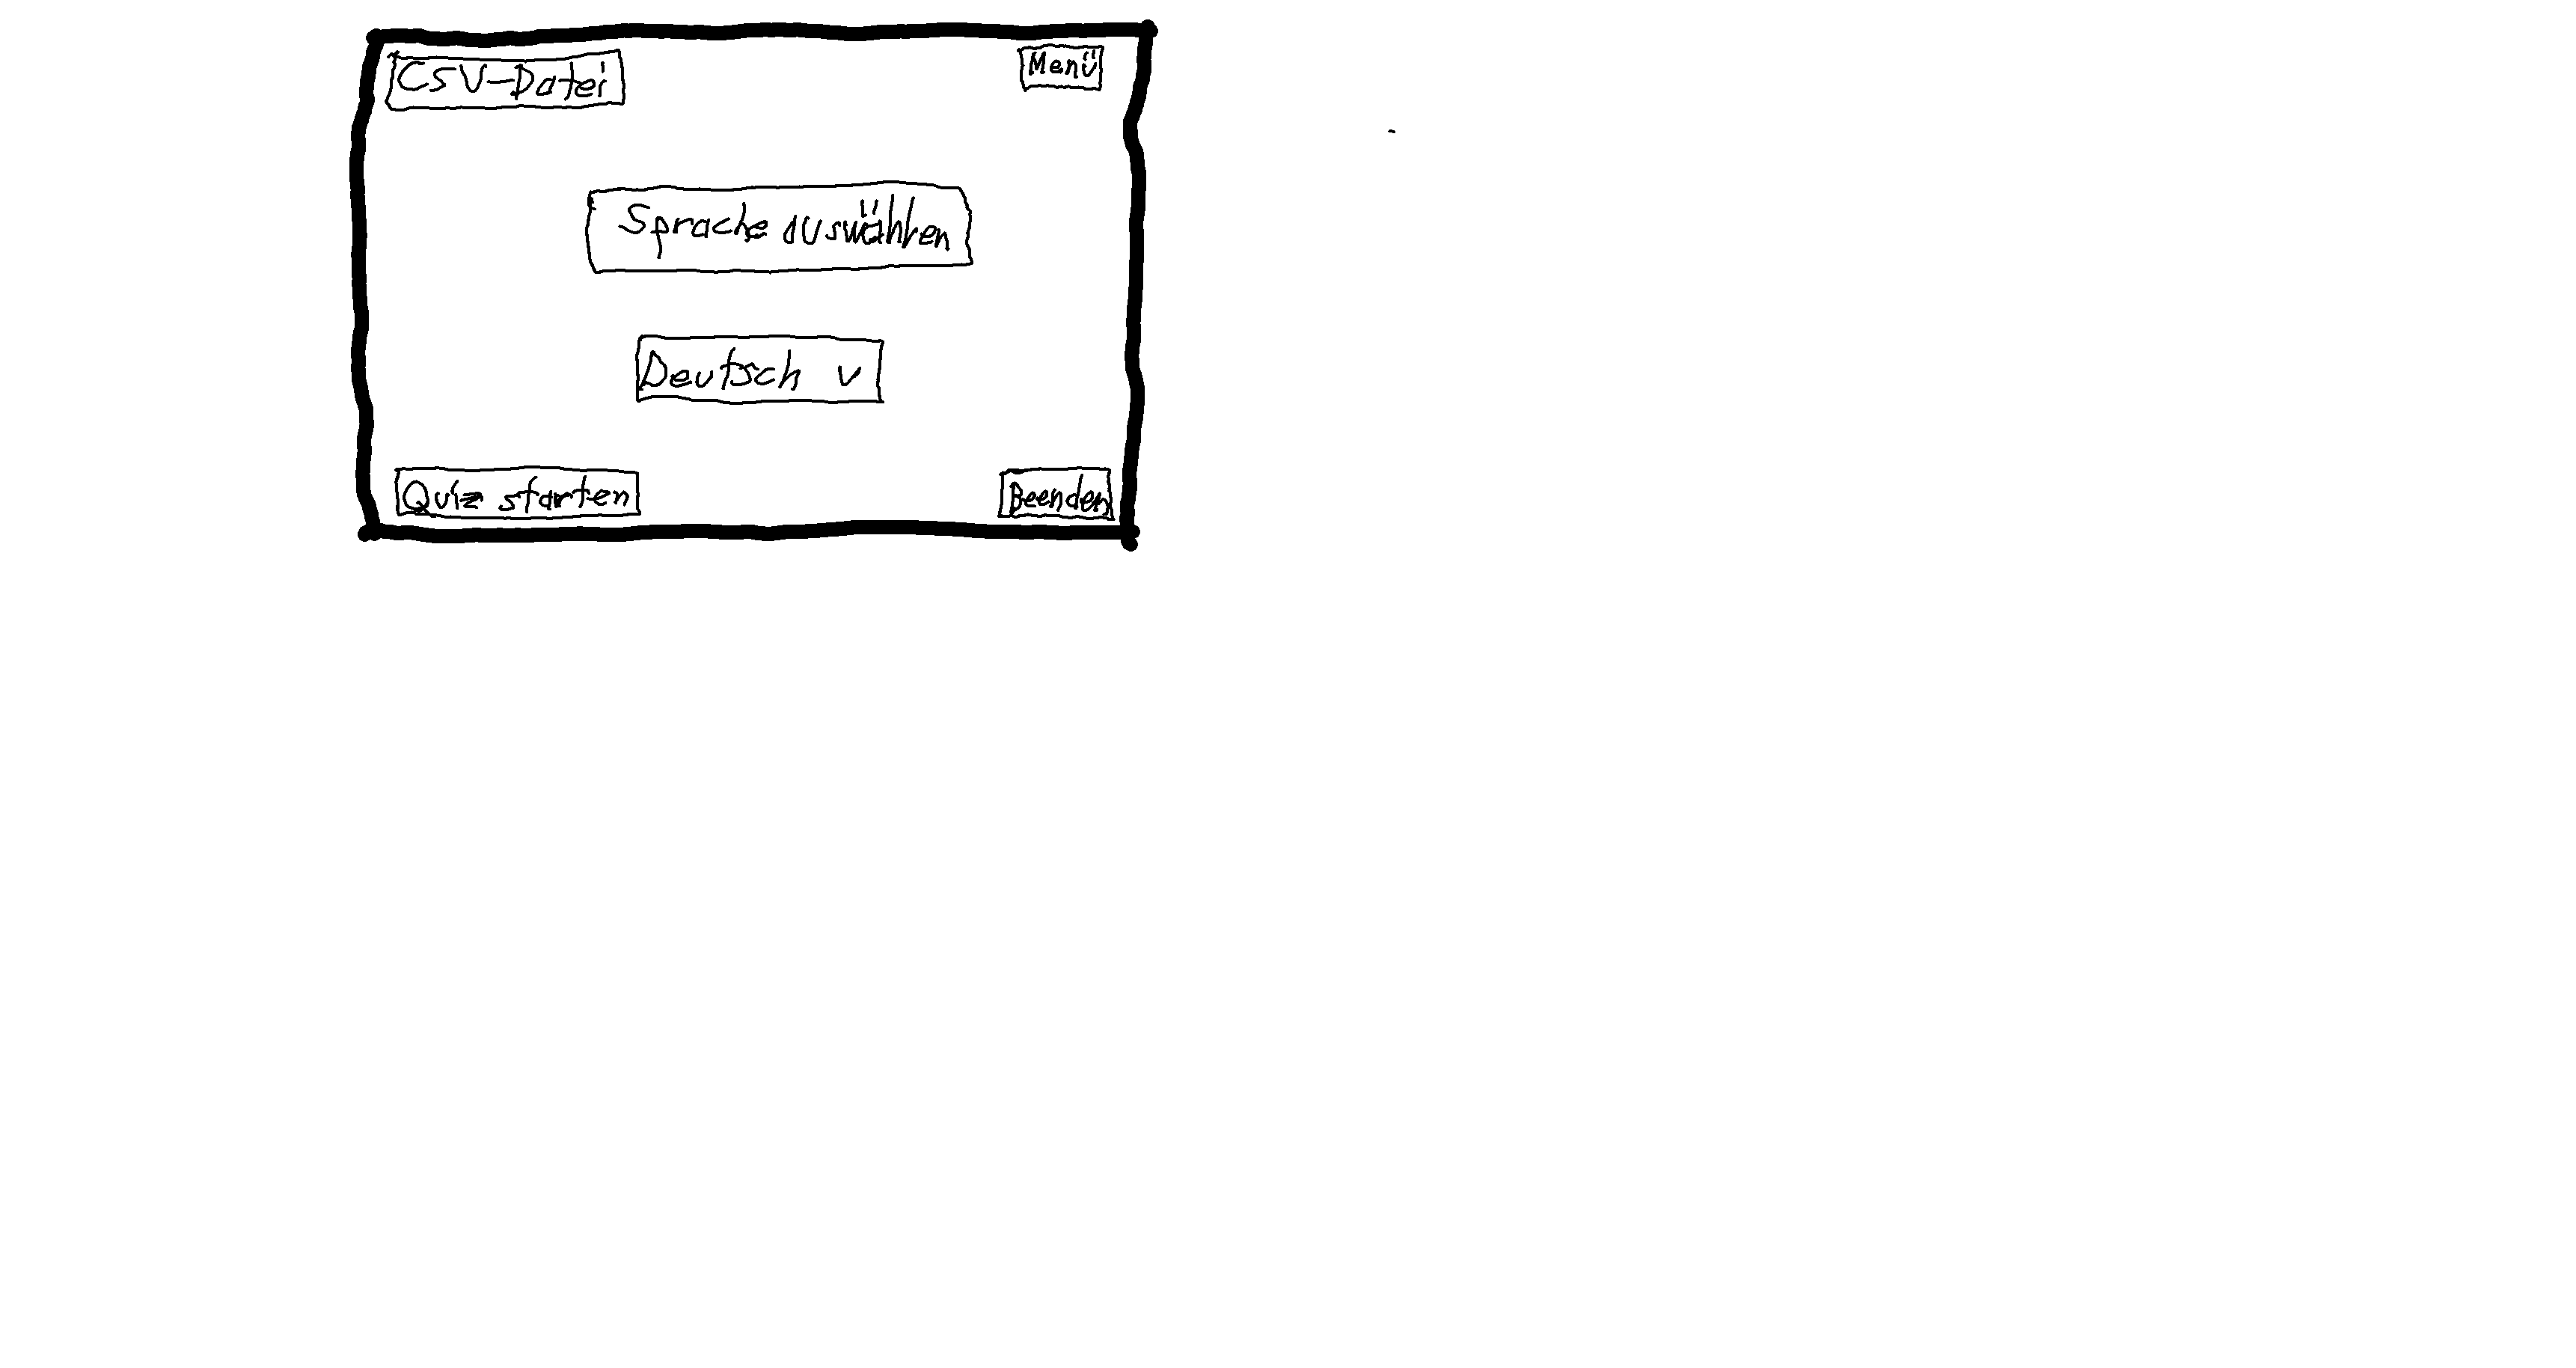 CSV-Datei
Menü
Sprache auswählen
Deutsch v
Quiz starten
Beenden